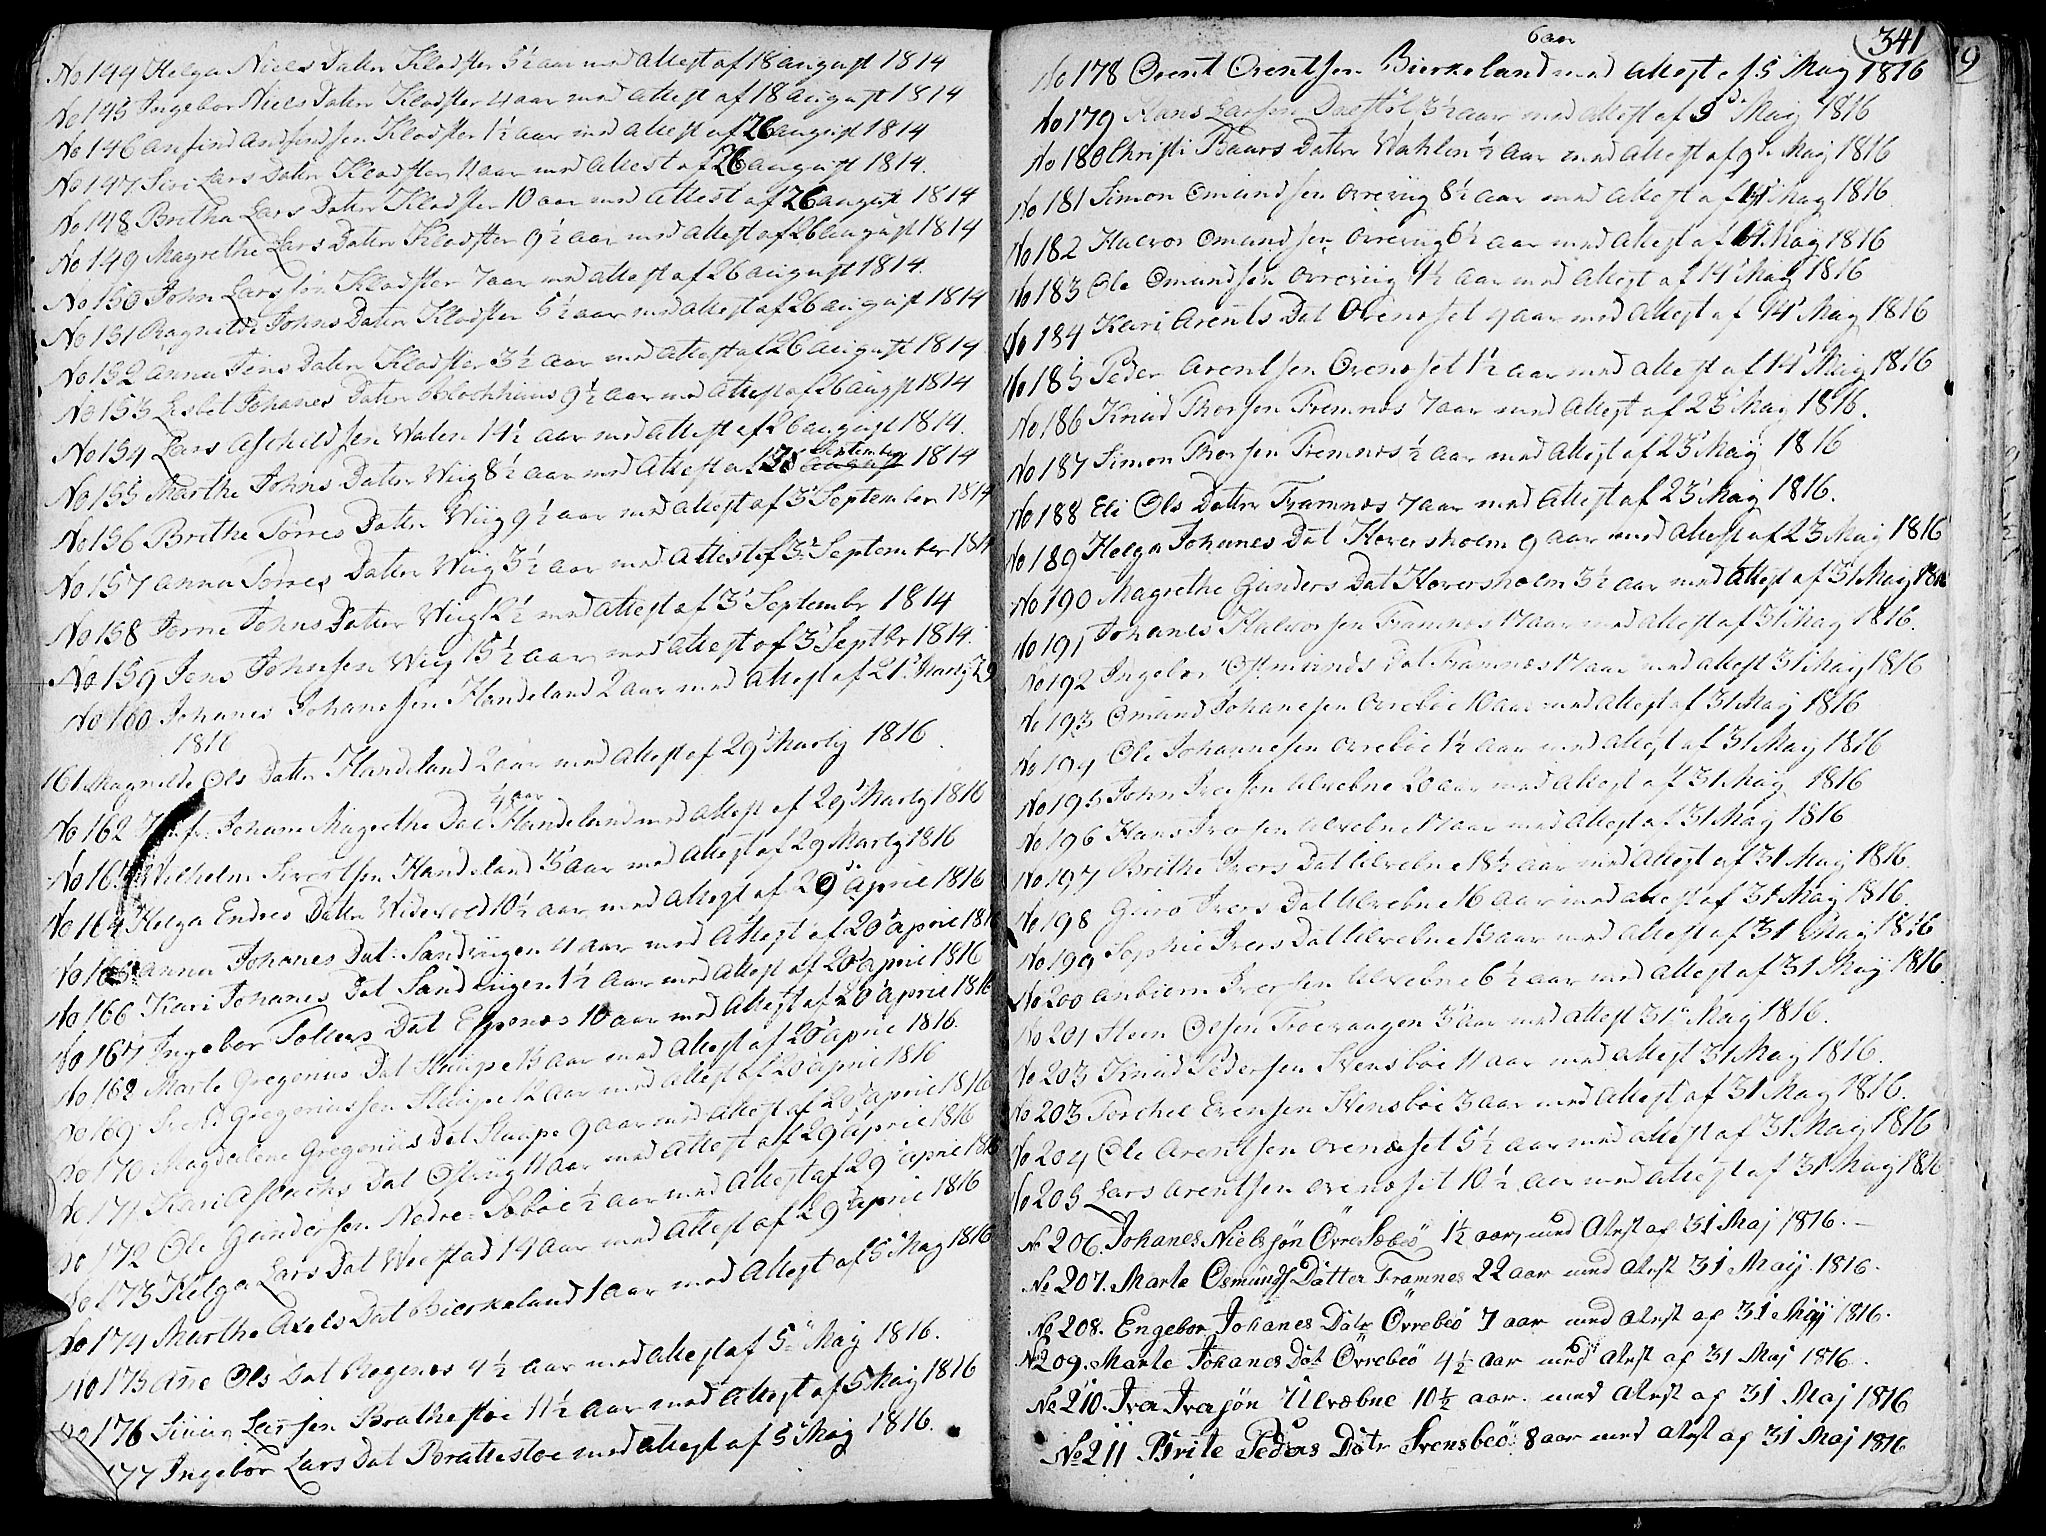 No 144 Helga Niels Datter Kloster 5½ aar med attest af 18 august 1814
No 145 Ingebor Niels Datter Kloster 4 aar med attest af 18 august 1814
No 146 Anfind Andfindsen Kloster 1½ aar med attest af 26 august 1814
No 147 Siri Lars Datter Kloster 11 aar med attest af 26 august 1814.
No 148 Britha Lars Datter Kloster 10 aar med attest af 26 august 1814
No 149 Magrethe Lars Datter Kloster 9½ aar med attest af 26 august 1814
No 150 John Lars sön Kloster 7 aar med attest af 26 august 1814.
No 151 Ragnilde Johns Datter Kloster 5½ aar med attest af 26 august 1814
No 152 Anna Jens Datter Kloster 3½ aar med attest af 26 august 1814
No 153 Lisbet Johanes Datter Blochhuus 9½ aar med attest af 26 august 1814
No 154 Lars Aschildsen Walen 14½ aar med attest af 26 august 1814.
No 155 Marthe Johns Datter Wiig 8½ aar med attest af September 1814
No 156 Brithe Törres Datter Wiig 9½ aar med attest af 3 September 1814
No 157 Anna Törres Datter Wiig 3½ aar med attest af 3 September 1814
No 158 Johns Datter Wiig 12½ med attest af 3 Septembr 1814
No 159 Jens Johnsen Wiig 15½ aar med attest af 3 Septbr 1814.
No 160 Johanes Johanesen Handeland 2 aar med attest af 21 Martij
1816
161 Magnilde Ols Datter Handeland 2 aar med attest af 29 Martij 1816
½ aar
No 162 Johane Magrethe Dat Handeland med attest af 29 Martij 1816
No 163 Wilhelm Sivertsen Handeland 3 aar med attest af 29 Martij 1816
No 164 Helga Endres Datter Widevold 10½ aar med attest af 20 april 1816
No 165 Anna Johanes Dat. Sandvigen 4 aar med attest af 20 april 1816
No 166 Kari Johanes Dat Sandvigen 1½ aar med attest af 20 april 1816
No 167 Ingebor Tollevs Dat 10 aar med attest af 20 april 1816
No 168 Marte Gregorius Dat Staupe aar med attest af 20 april 1816.
No 169 Gregoriussen Staupe 12 aar med attest af 20 april 1816
No 170 Magdalene Gregorius Dat Staupe 9 aar med attest af 20 april 1816
No 171 Kari Dat 11 aar med attest af 29 april 1816
No 172 Ole Gundersen Nedre Sæböe ½ aar med attest af 29 april 1816
No 173 Helga Lars Dat Weestad 14 aar med attest af 29 april 1816
No 174 Marthe Axels Dat Bierkeland 1 aar med attest af 5 Maÿ 1816
No 175 Ane Ols Dat 4½ aar med attest af 5 Maÿ 1816.
No 176 Larsen Brathestöe 11½ aar med attest af 5 Maÿ 1816
177 Ingebor Lars Dat Brattestöe med attest af 5 Maÿ 1816.
341
9
6 aar
No 178 Orent Orentsen Bierkeland med attest af 5 Maÿ 1816
No 179 Hans Larsen 3½ aar med attest af 9 Maÿ 1816
No 180 Christi Baars Datter Wahlen ½ aar med attest af 9 Maÿ 1816
No 181 Simon Omundsen Ovreviig 8½ aar med attest af 14 Maÿ 1816
No 182 Halvor Omundsen Ovreviig 6½ aar med attest af 14 Maÿ 1816
No 183 Ole Omundsen Ovreviig 1½ aar med attest af 14 Maÿ 1816
No 184 Kari Arents Dat Ovenæset 4 aar med attest af 14 Maÿ 1816
No 185 Peder Arentsen Ovenæset 1½ aar med attest af 14 Maÿ 1816
No 186 Knud Thorsen Framnæs 7 aar med attest af 23 Maÿ 1816.
No 187 Simon Thorsen Framnæs ½ aar med attest af 23 Maÿ 1816
No 188 Eli Ols Datter Framnæs 7 aar med attest af 23 Maÿ 1816.
No 189 Helga Johanes Dat Heversholm 9 aar med attest af 23 Maÿ 1816
No 190 Magrethe Gunders Dat Heversholm 3½ aar med attest af 31 Maÿ 1816
No 191 Johanes Halvorsen Framnæs 17 aar med attest af 31 Maÿ 1816.
No 192 Ingebor Osmunds Dat Framnæs 17 aar med attest 31 Maÿ 1816
No 193 Omund Johanesen Ovreböe 10 aar med attest af 31 Maÿ 1816
No 194 Ole Johannesen Ovreböe 1½ aar med attest af 31 Maÿ 1816
No 195 John Iversen Ulvebne 20 aar med attest af 31 Maÿ 1816
No 196 Hans Iversen Ulvebne 17 aar med attest af 31 Maÿ 1816
No 197 Brithe Ivers Dat Ulvebne 18½ aar med attest af 31 Maÿ 1816
No 198 Guro Ivers Dat Ulvebne 16 aar med attest af 31 Maÿ 1816.
No 199 Sophie Ivers Dat Ulvebne aar med attest af 31 Maÿ 1816
No 200 Anbiörn Iversen Ulvebne 6½ aar med attest af 31 Maÿ 1816
No 201 Sten Olsen 3 aar med attest 31 Maÿ 1816.
No 203 Knud Pedersen Svensböe 11 aar med attest 31 Maÿ 1816.
No 203 Torchel Evensen Svensböe 3 aar med attest af 31 Maÿ 1816.
No 204 Ole Arentsen Ovenæset 5½ aar med attest af 31 Maÿ 1816
No 205 Lars Arentsen Ovenæset 10½ aar med attest af 31 Maÿ 1816
No 206. Johanes Nielssön Övre Sæbeö 1½ aar, med Atest af 31 Maj 1816.
No 207. Marte Osmunds Datter Framnes 22 aar med Atest 31 Maij 1816.
No 208. Engebor Johanes Datr Övrebeö 7 aar med Atest af 31 Maij 1816.
No 209. Marte Johanes Dat Övrebeö 4½ aar med Atest af 31 Maj 1816.
No 210. Iva Ivasjön Ulvæbne 10½ aar. med Atest af 31 Maj 1816
No 211 Birite Peders Datr Svensbeö: 8 aar med Atest af 31 Maj 1816